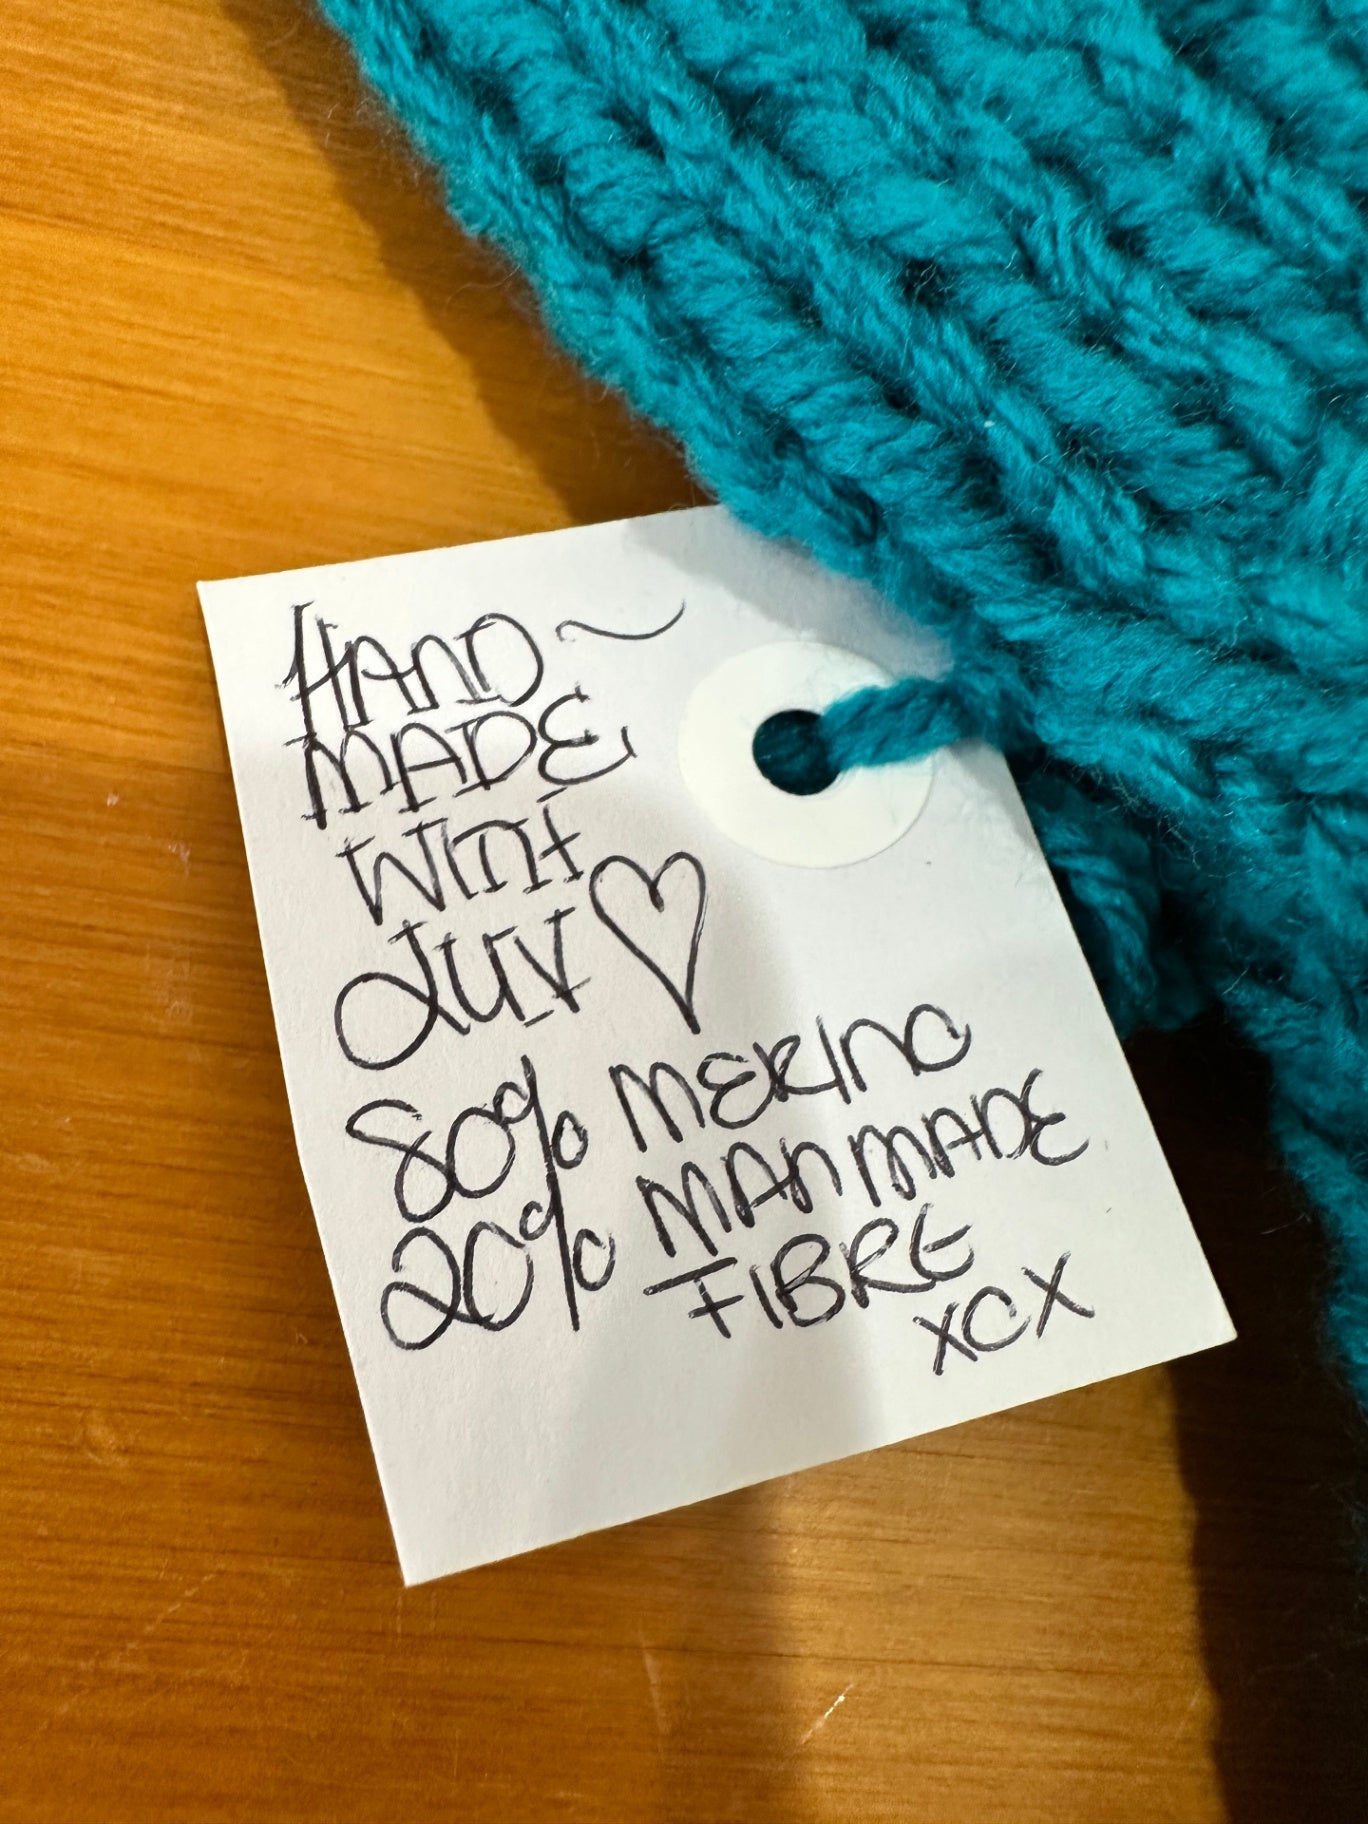 HAND~
MADE
WITH
LUV ♡
80% MERINO
20% MANMADE
FIBRE
XOX